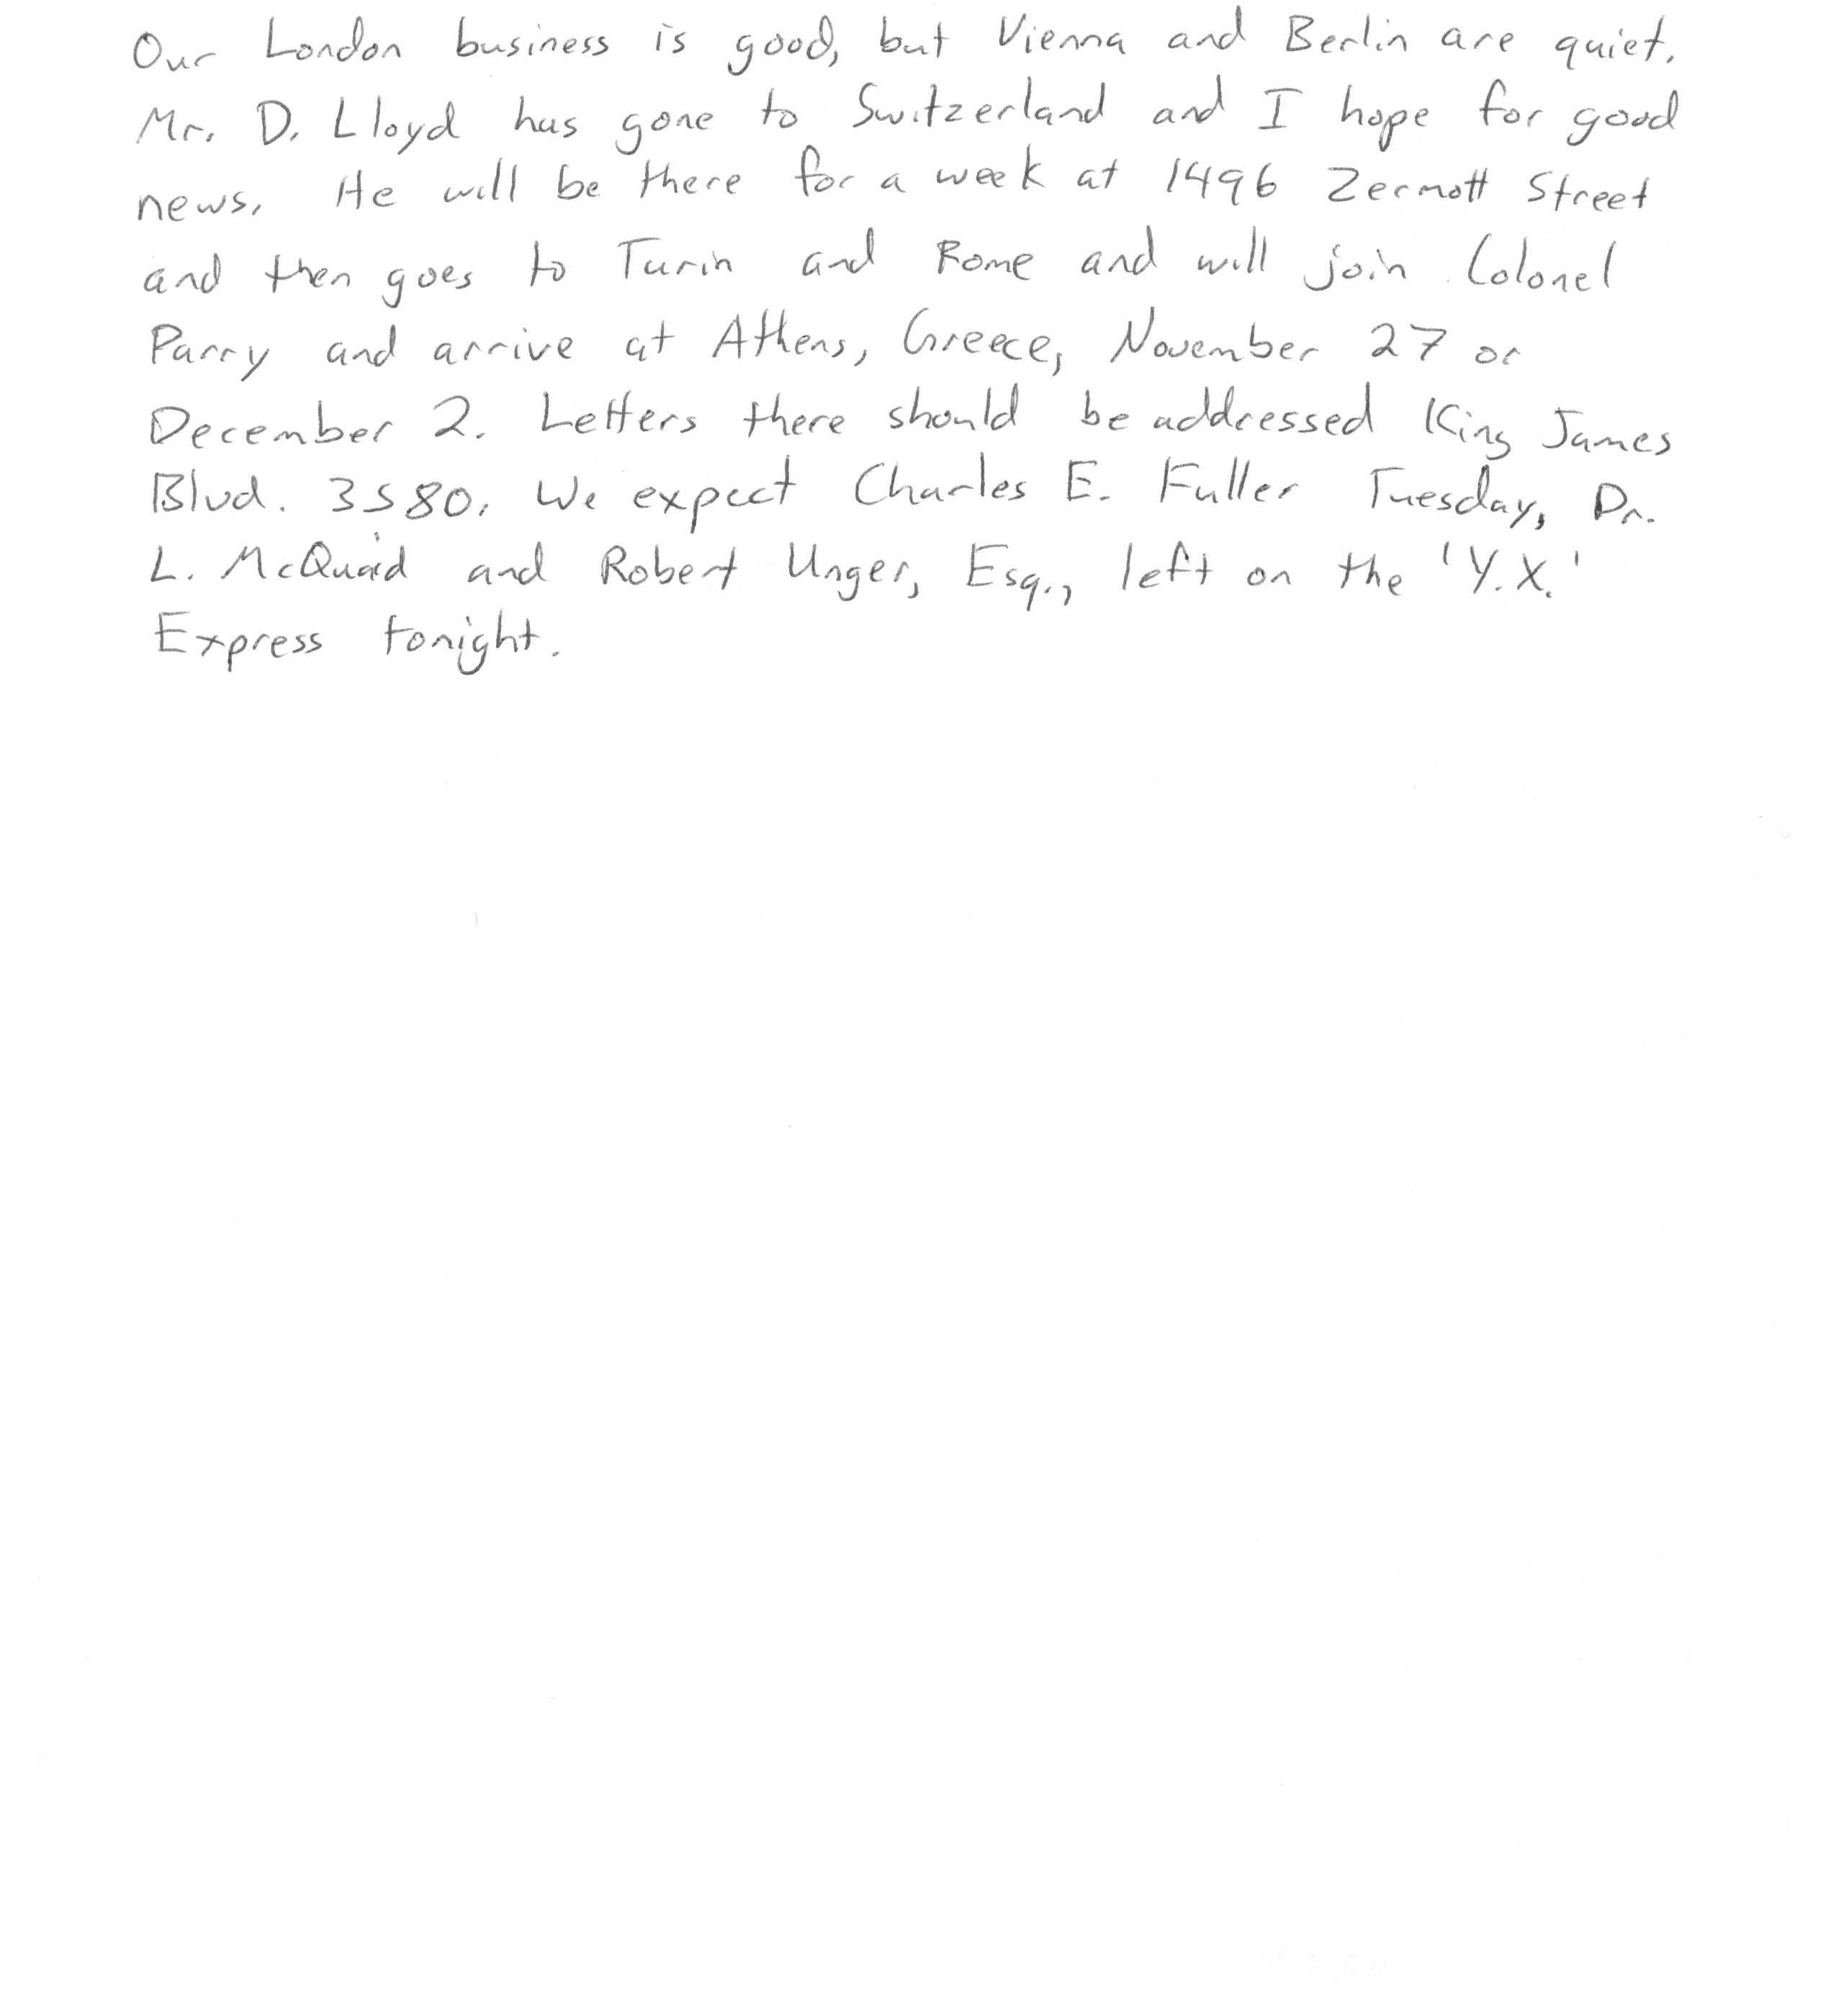 Our London business is good, but Vienna and Berlin are quiet.
Mr. D. Lloyd has gone to Switzerland and I hope for good
news. He will be there for a week at 1496 Zermott Street
and then goes to Turin and Rome and will join Colonel
Parry and arrive at Athens, Greece, November 27 or
December 2. Letters there should be addressed King James
Blvd. 3580. We expect Charles E. Fuller Tuesday, Dr.
L. McQuaid and Robert Unger, Esq., left on the 'Y.X.'
Express tonight.